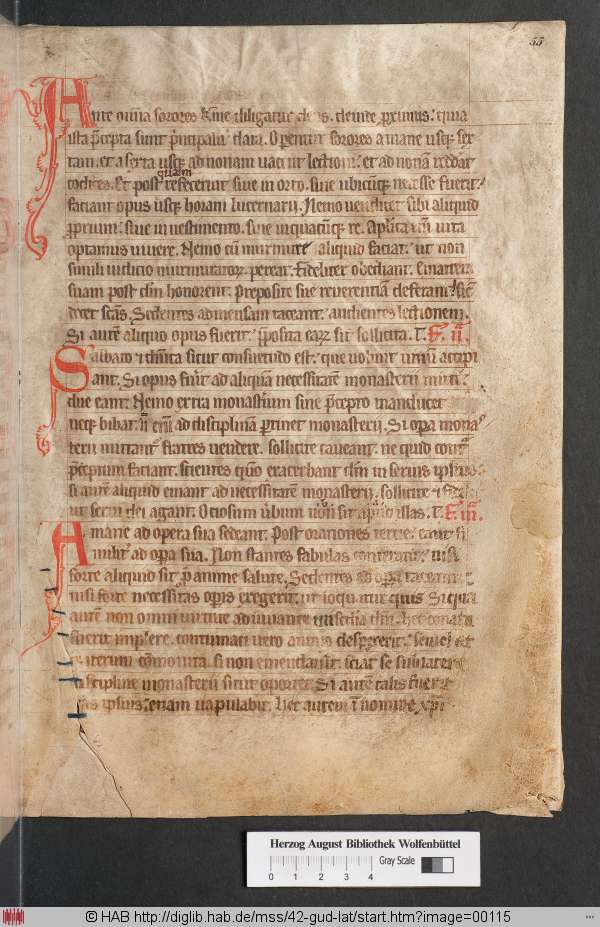 55
Ante omnia sorores kme diligatur deus. deinde proximus: quia
ista p̄cepta sunt p̄ncipalia data. Operentur sorores a mane usq; sex
tam. et a sexta usq; ad nonam uacent lectioni. et ad nonā reddāt
codices. Et post quam refecerint siue in orto. siue ubicūq; necesse fuerit:
faciant opus usq; horam lucernarii. Nemo uendicet sibi aliquid
p̄prium: siue in uestimento. siue in quacūq; re. Aplica eni uita
optamus uiuere. Nemo cū murmure aliquid faciat: ut non
simili iudicio murmuratorꝝ pereat. Fideliter obediant.
suam post dm̄ honorent. preposite sue reuerentiam deferant: sic
decet scās. Sedentes ad mensam taceant. audientes lectionem.
Si autē aliquo opus fuerit: p̄posita earꝝ sit sollicita. F. ii.
Sabbato et dn̄ica sicut consuetudo est. que uolunt uinū accipi
ant. Si opus fuerit ad aliquā necessitatē monasterii mitti:
due eant. Nemo extra monasterium sine p̄cepto manducet
neq; bibat. n̄ enī ad disciplinā pertinet monasterii. Si opera monas
terii mittant fratres uendere. sollicite caueant. ne quid contra
p̄ceptum faciant. scientes quō exacerbant dm̄ in seruis ipsius.
si autē aliquid emant ad necessitatē monasterii. sollicite et fideliter
ut serui dei agant. Otiosum uerbum non sit apud illas. F. iii.
A mane ad opera sua sedeant. Post orationes tertie. eant si
militer ad opera sua. Non stantes fabulas contexant: nisi
forte aliquid sit p̄ anime salute. Sedentes ad opera taceant.
nisi forte necessitas operis exegerit. ut loquatur quis. Si qua
autem non omni uirtute adiuuante misericordia dm̄. hec conata
fuerit implere. contumaci uero animo despexerit: semel et
iterum cōmonita. si non emendauerit. sciat se subiacere
discipline monasterii sicut oportet. Si autē talis fuerit
etas ipsius: etiam uapulabit. hec autem ī nomine xp̄i
Herzog August Bibliothek Wolfenbüttel
Gray Scale
0 1 2 3 4
© HAB http://diglib.hab.de/mss/42-gud-lat/start.htm?image=00115